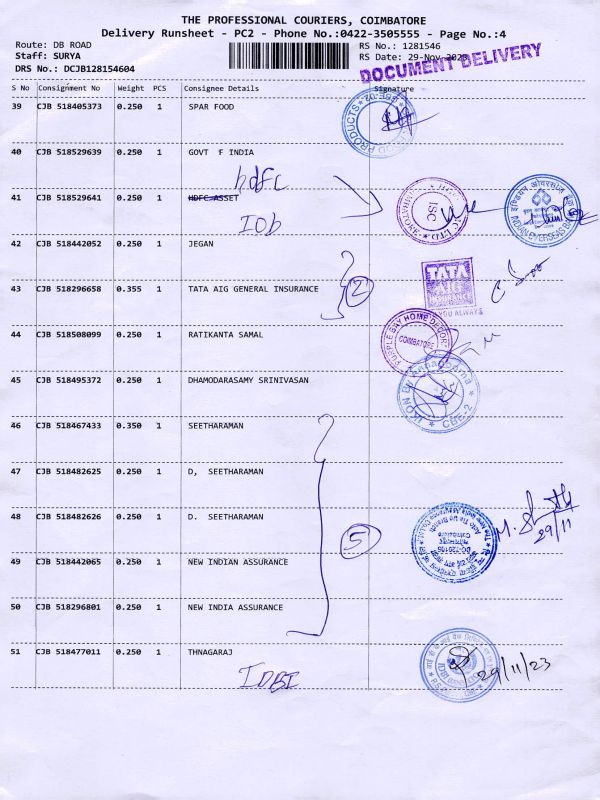 THE PROFESSIONAL COURIERS, COIMBATORE
Delivery Runsheet - PC2 - Phone No.:0422-3505555 - Page No.:4
Route: DB ROAD
RS No.: 1281546
Staff: SURYA
RS Date: 29-Nov-2023
DRS No.: DCJB128154604
DOCUMENT DELIVERY
S No Consignment No Weight PCS Consignee Details Signature
39 CJB 518405373 0.250 1 SPAR FOOD
PRODUCTS
40 CJB 518529639 0.250 1 GOVT F INDIA
hdfc
41 CJB 518529641 0.250 1 HDFC ASSET
ISC
INDIAN OVERSEAS
IOb
42 CJB 518442052 0.250 1 JEGAN
43 CJB 518296658 0.355 1 TATA AIG GENERAL INSURANCE
2
TATA
AIG
INSURANCE
YOU ALWAYS
44 CJB 518508099 0.250 1 RATIKANTA SAMAL
PURPLE BAY HOME DECOR
COIMBATORE
45 CJB 518495372 0.250 1 DHAMODARASAMY SRINIVASAN
CBE-2
46 CJB 518467433 0.350 1 SEETHARAMAN
47 CJB 518482625 0.250 1 D, SEETHARAMAN
48 CJB 518482626 0.250 1 D. SEETHARAMAN
5
29/11
49 CJB 518442065 0.250 1 NEW INDIAN ASSURANCE
50 CJB 518296801 0.250 1 NEW INDIA ASSURANCE
51 CJB 518477011 0.250 1 THNAGARAJ
IDBI
29/11/23